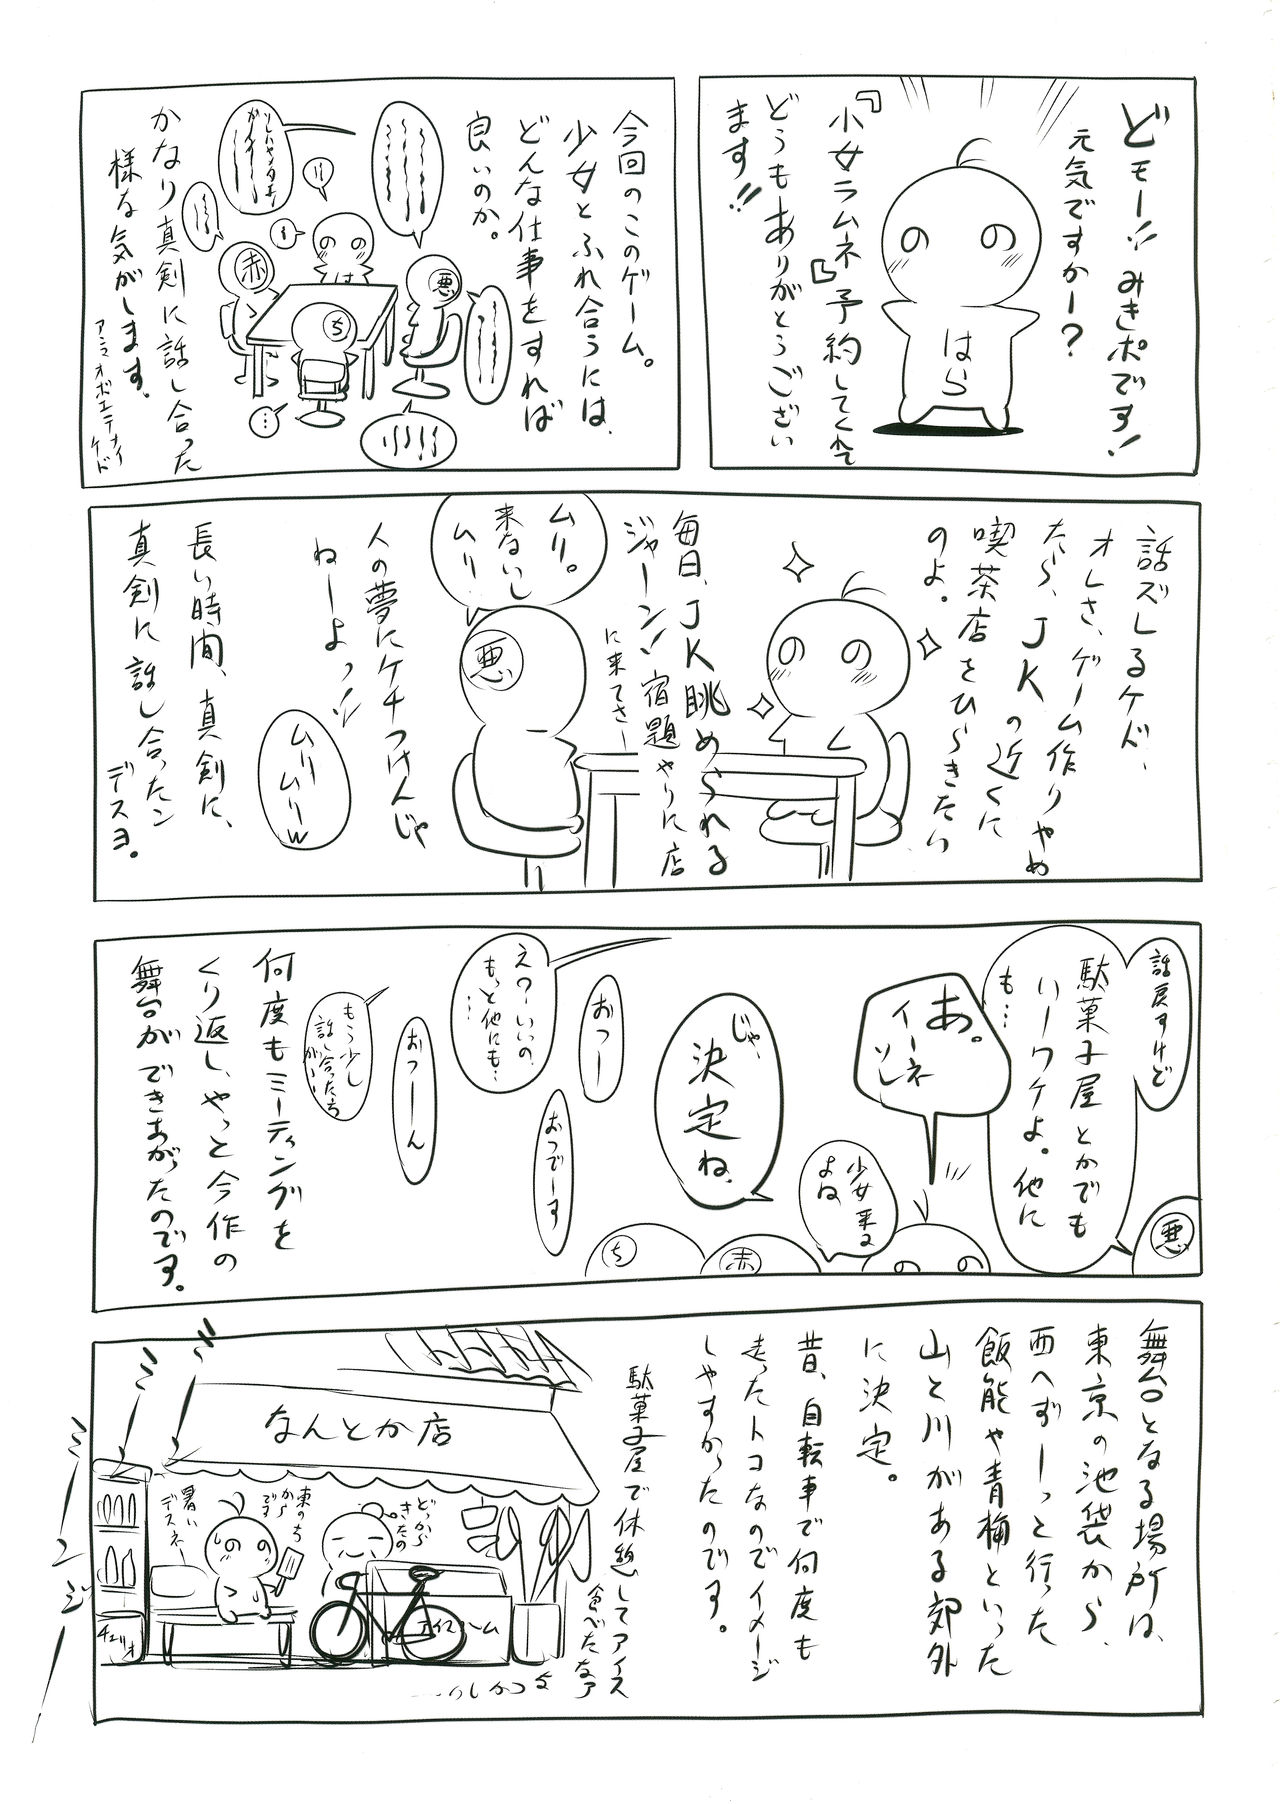 どモー!!みきポです!
元気ですかー?
『少女ラムネ』予約してくれて
どうもありがとうござい
ます!!
はら
今回のこのゲーム。
少女とふれ合うには、
どんな仕事をすれば
良いのか。
は
悪
赤
ち
かなり真剣に話し合った
様な気がします。
アンマオボエテナイ
ケド
話ズレるケド、
オレさ、ゲーム作りやめ
たら、JKの近くに
喫茶店をひらきたい
のよ。
毎日、JK眺められる
ジャーン!宿題やりに店
に来てさー
ムリ。
来ないし
ムリー
悪
人の夢にケチつけんじゃ
ねーよっ!!
ムリ
ムリーw
長い時間、真剣に、
真剣に話し合ったン
デスヨ。
話戻すけど
駄菓子屋とかでも
いーワケよ。他に
も…
悪
あ。
イーネ
ソレ
少女来る
よね
赤
ち
じゃ、
決定ね。
おつでーす
おつー
えー、いいの、
もっと他にも…
おつーん
もう少し
話し合ったち
が…
何度もミーティングを
くり返し、やっと今作の
舞台ができあがったのです。
舞台となる場所は、
東京の池袋から、
西へずーっと行った
飯能や青梅といった
山と川がある郊外
に決定。
昔、自転車で何度も
走ったトコなのでイメージ
しやすかったのです。
駄菓子屋で休憩してアイス
食べたなア
なんとか店
どっから
きたの
東のち
からです
暑い
デスネー
アイスクリーム
チェリオ
ミーンミーンジー